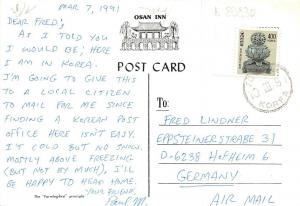 MAR 7, 1991
DEAR FRED,
AS I TOLD YOU
I WOULD BE; HERE
I AM IN KOREA.
I'M GOING TO GIVE THIS
TO A LOCAL CITIZEN
TO MAIL FOR ME SINCE
FINDING A KOREAN POST
OFFICE HERE ISN'T EASY.
IT'S COLD BUT NO SNOW.
MOSTLY ABOVE FREEZING
(BUT NOT BY MUCH), I'LL
BE HAPPY TO HEAD HOME.
YOUR FRIEND,
Paul M.
The "Farmingdest" principle
OSAN INN
POST CARD
To:
FRED LINDNER
EPPSTEINERSTRAßE 31
D-6238 HOFHEIM 6
GERMANY
AIR MAIL
400
KOREA